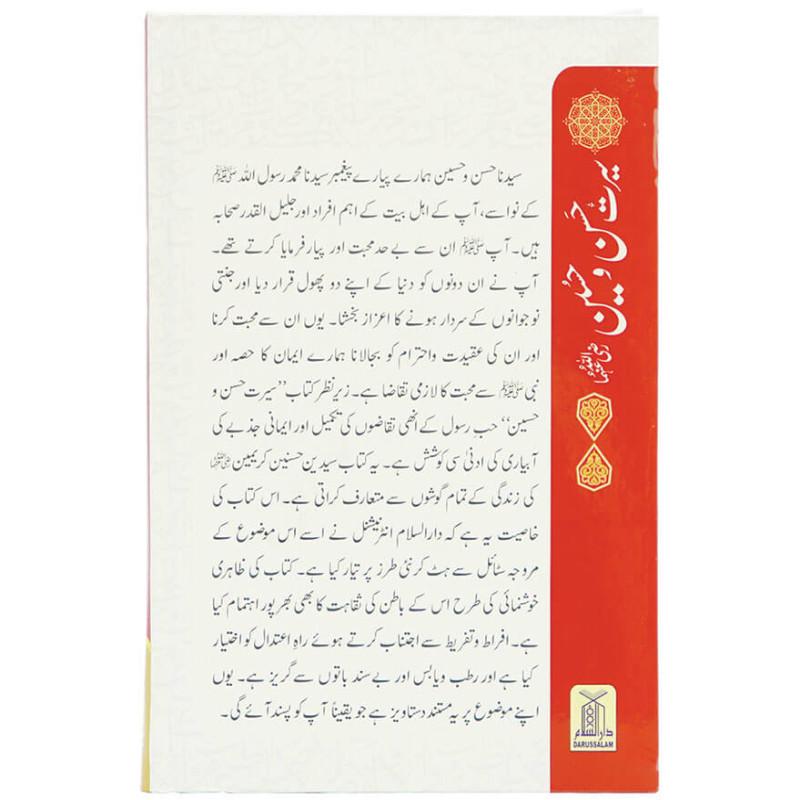 سیدنا حسن و حسین ہمارے پیارے پیغمبر سیدنا محمد رسول اللہ ﷺ
کے نواسے، آپ کے اہل بیت کے اہم افراد اور جلیل القدر صحابہ
ہیں۔ آپ ﷺ ان سے بے حد محبت اور پیار فرمایا کرتے تھے۔
آپ نے ان دونوں کو دنیا کے اپنے دو پھول قرار دیا اور جنتی
نوجوانوں کے سردار ہونے کا اعزاز بخشا۔ یوں ان سے محبت کرنا
اور ان کی عقیدت و احترام کو بجا لانا ہمارے ایمان کا حصہ اور
نبی ﷺ سے محبت کا لازمی تقاضا ہے۔ زیر نظر کتاب ”سیرت حسن و
حسین“ حب رسول کے انھی تقاضوں کی تکمیل اور ایمانی جذبے کی
آبیاری کی ادنیٰ سی کوشش ہے۔ یہ کتاب سیدین حسنین کریمین رضی اللہ عنہما
کی زندگی کے تمام گوشوں سے متعارف کراتی ہے۔ اس کتاب کی
خاصیت یہ ہے کہ دارالسلام انٹرنیشنل نے اسے اس موضوع کے
مروجہ سٹائل سے ہٹ کر نئی طرز پر تیار کیا ہے۔ کتاب کی ظاہری
خوشنمائی کی طرح اس کے باطن کی ثقاہت کا بھی بھرپور اہتمام کیا
ہے۔ افراط و تفریط سے اجتناب کرتے ہوئے راہِ اعتدال کو اختیار
کیا ہے اور رطب و یابس اور بے سند باتوں سے گریز ہے۔ یوں
اپنے موضوع پر یہ مستند دستاویز ہے جو یقیناً آپ کو پسند آئے گی۔
سیرت حسن و حسین رضی اللہ عنہما
دارالسلام
DARUSSALAM